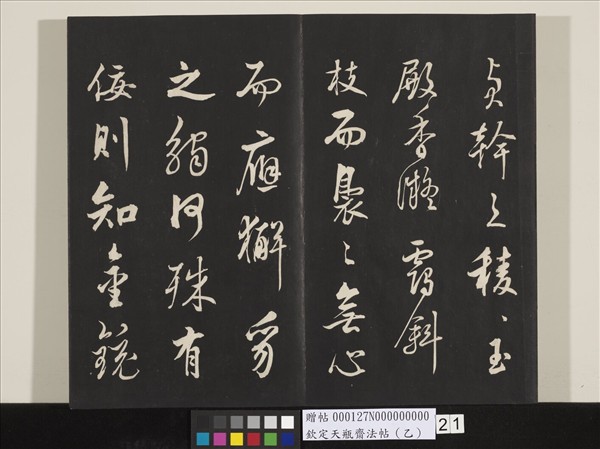 貞幹之稜〻玉
殿香凝靄斜
枝而裊〻無心
而應獬豸
之觸何殊有
佞則知金鏡
贈帖 000127N000000000
欽定天瓶齋法帖(乙)
21